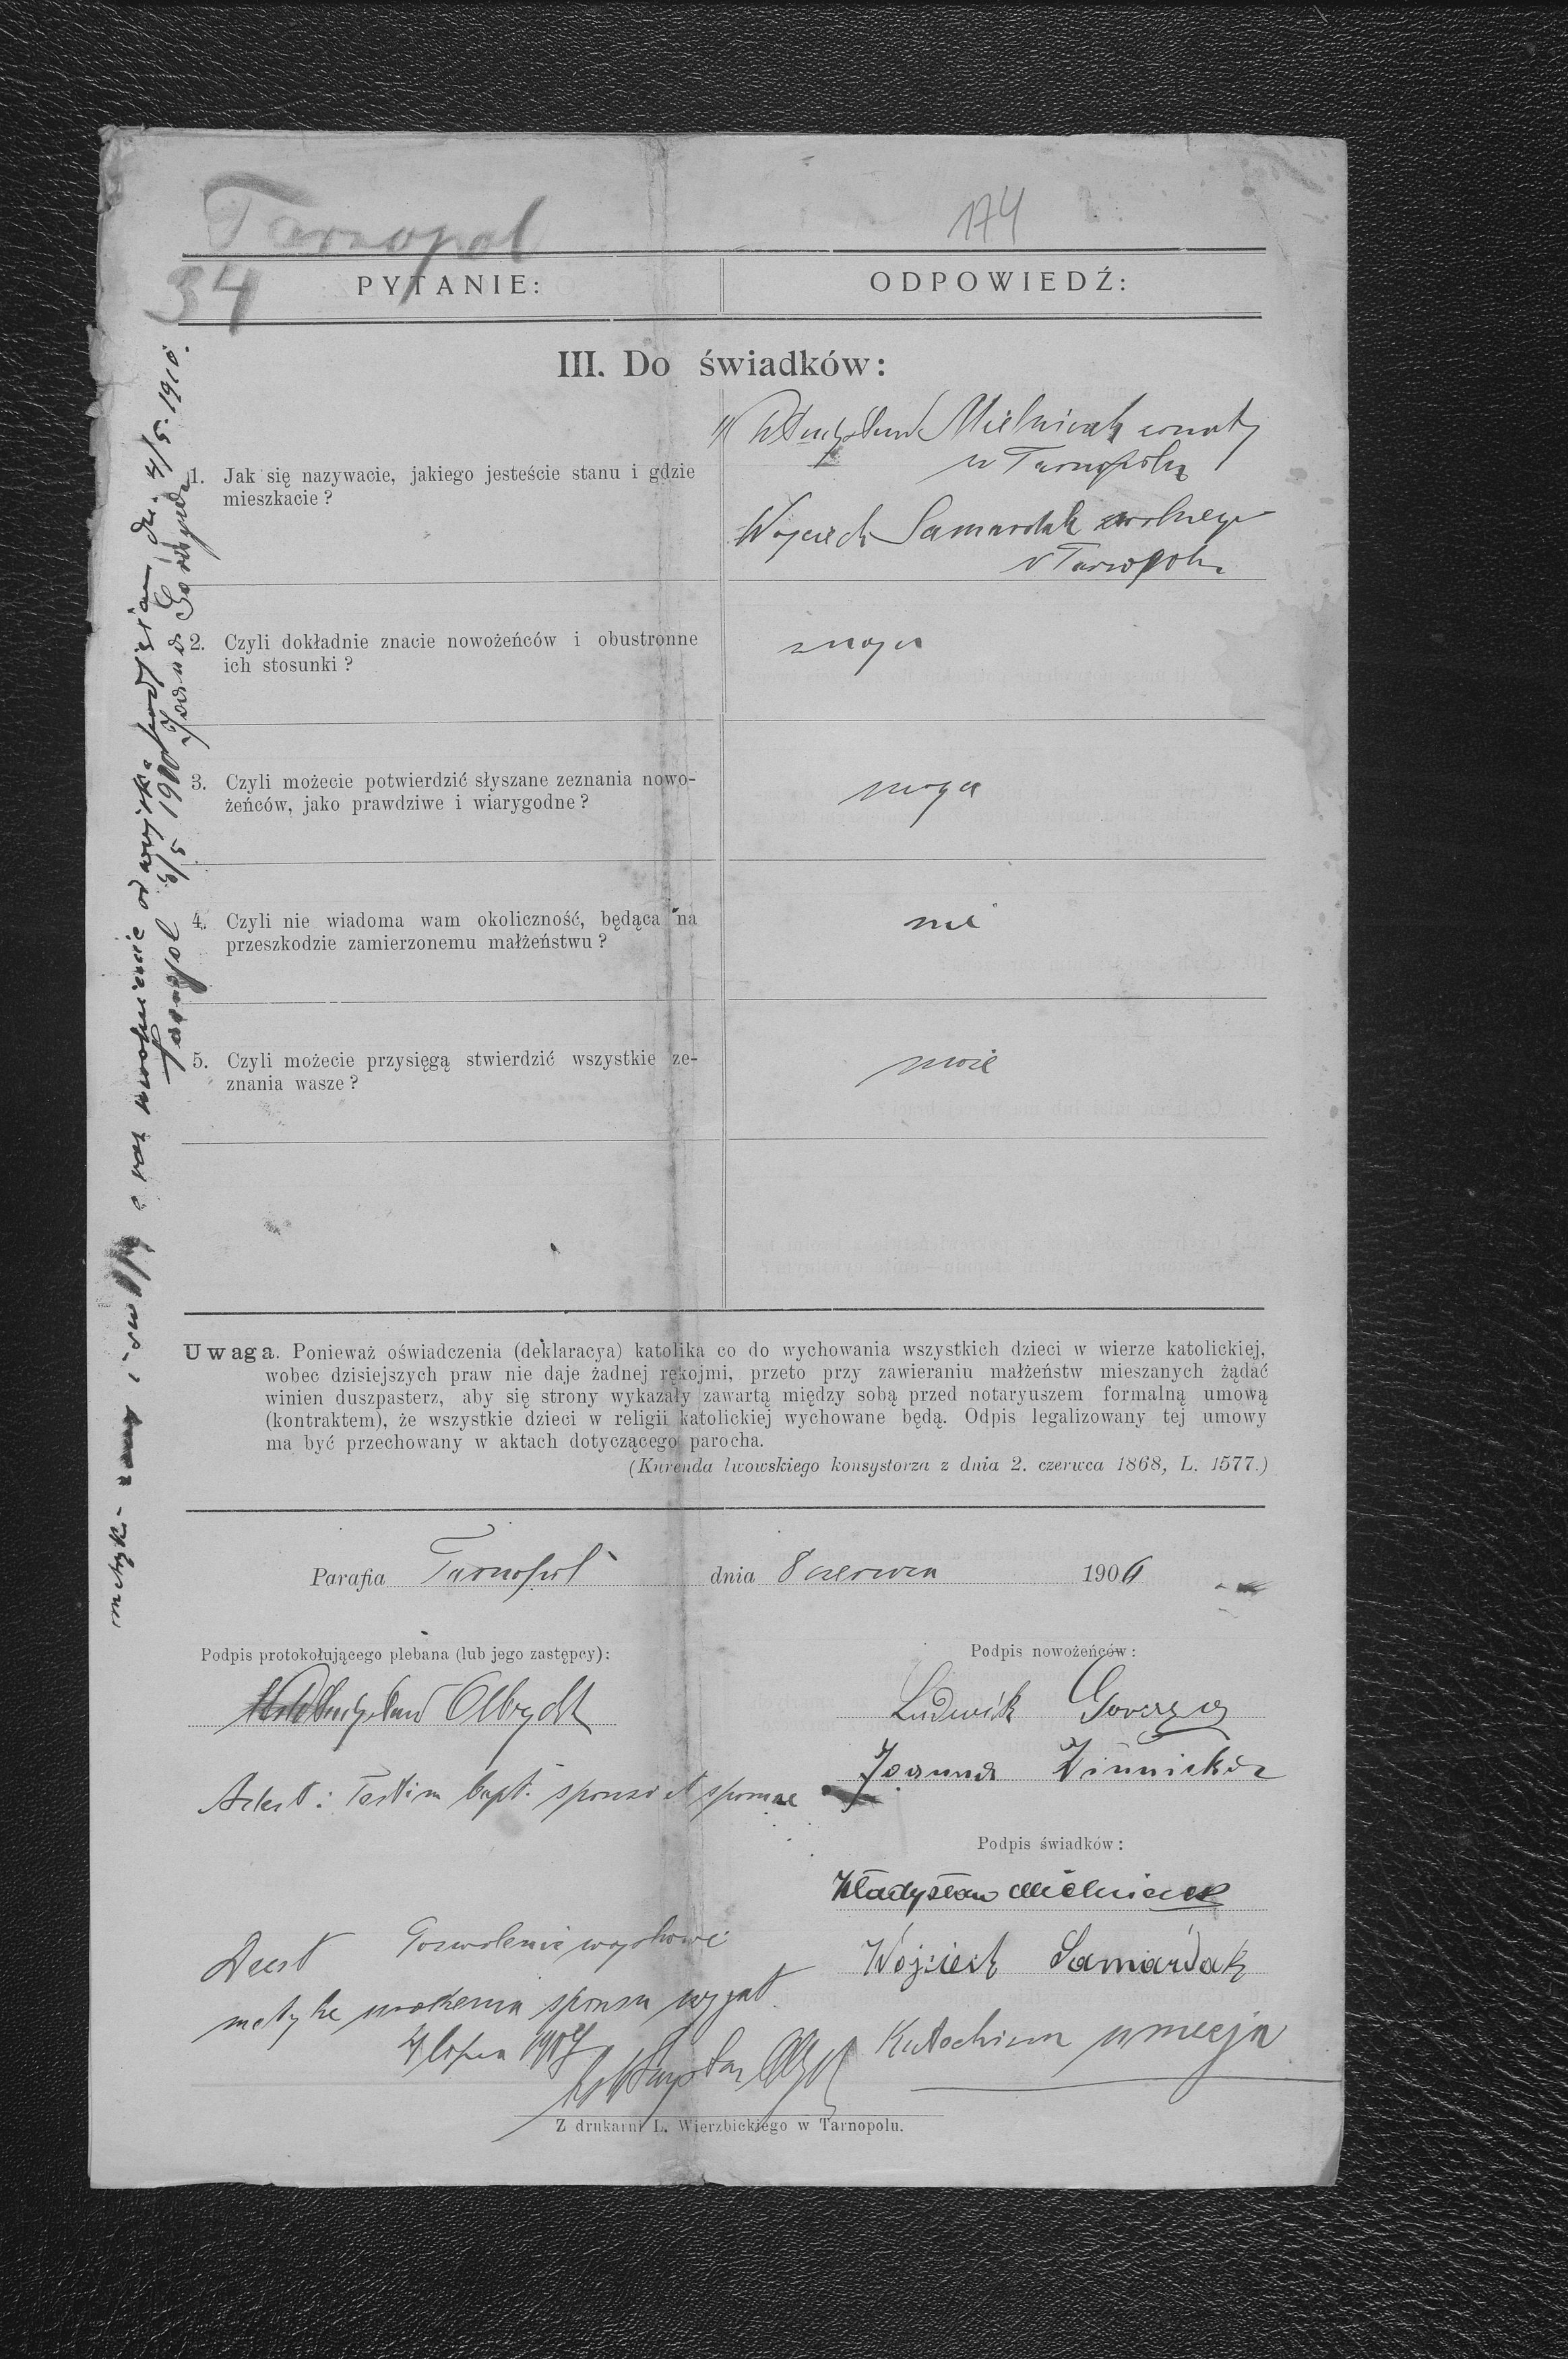 Tarnopol
174
34
PYTANIE:
ODPOWIEDŹ:
III. Do świadków:
1. Jak się nazywacie, jakiego jesteście stanu i gdzie
mieszkacie?
1) Władysław Mielniczek żonaty
w Tarnopolu
Wojciech Samardak
w Tarnopolu
2. Czyli dokładnie znacie nowożeńców i obustronne
ich stosunki?
znaja
3. Czyli możecie potwierdzić słyszane zeznania nowo-
żeńców, jako prawdziwe i wiarygodne?
moga
4. Czyli nie wiadoma wam okoliczność, będąca na
przeszkodzie zamierzonemu małżeństwu?
nie
5. Czyli możecie przysięgą stwierdzić wszystkie ze-
znania wasze?
metrykę i oraz uwolnienie od wojska 4/5. 1910.
Tarnopol 5/5 1910 Joanna
Uwaga. Ponieważ oświadczenia (deklaracya) katolika co do wychowania wszystkich dzieci w wierze katolickiej,
wobec dzisiejszych praw nie daje żadnej rękojmi, przeto przy zawieraniu małżeństw mieszanych żądać
winien duszpasterz, aby się strony wykazały zawartą między sobą przed notaryuszem formalną umową
(kontraktem), że wszystkie dzieci w religii katolickiej wychowane będą. Odpis legalizowany tej umowy
ma być przechowany w aktach dotyczącego parocha.
(Kurenda lwowskiego konsystorza z dnia 2. czerwca 1868, L. 1577.)
Parafia Tarnopol dnia 8 czerwca 1906
Podpis protokołującego plebana (lub jego zastępcy):
Podpis nowożeńców:
Władysław Olbrycht
Ludwik
Joanna Winnicka
Adest: Testim bapt. sponsi et sponsae
Podpis świadków:
Władysław Mielniczek
Wojciech Samardak
Deest Pozwolenie wojskowe
metrykę urodzenia sponsa wyjął
4 lipca
Katechizm umieją
Z drukarni L. Wierzbickiego w Tarnopolu.